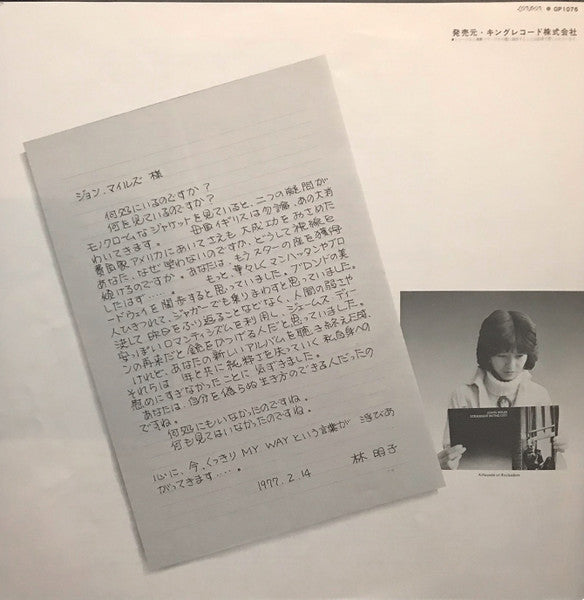 LONDON ● GP1076
発売元・キングレコード株式会社
ジョン・マイルズ 様
何処にいるのですか?
何を見ているのですか?
モノクロームなジャケットを見ていると、二つの疑問が
わいてきます。 母国イギリスは勿論、あの大消
費国家アメリカにおいてさえも大成功をおさめた
あなた、なぜ笑わないのですか、どうして視線を
傾けるのですか。あなたは、もうスターの座を獲得
したはず‥‥。 もっと、華々しくマンハッタンやブロ
ードウェイを闊歩すると思っていました。ブロンドの美
人ひきつれて、ジャガーでも乗りまわすと思っていました。
決して昨日をふり返ることなどなく、人間の弱さや
安っぽいロマンティシズムを利用し、ジェームス・ディー
ンの再来だと鐘をかつげる人だと思っていました。
けれど、あなたの新しいアルバムを聴き終えた頃、
それらは 年と共に純粋さを失っていく私自身への
慰めにすぎなかったことに気ずきました。
あなたは、自分を偽らぬ生き方のできる人だったの
ですね。
何処にもいなかったのですね。
何も見てはいなかったのですね。
心に、今、くっきり MY WAY という言葉が 浮びあ
がってきます‥‥。
1977. 2. 14
林 明子
JOHN MILES
STRANGER IN THE CITY